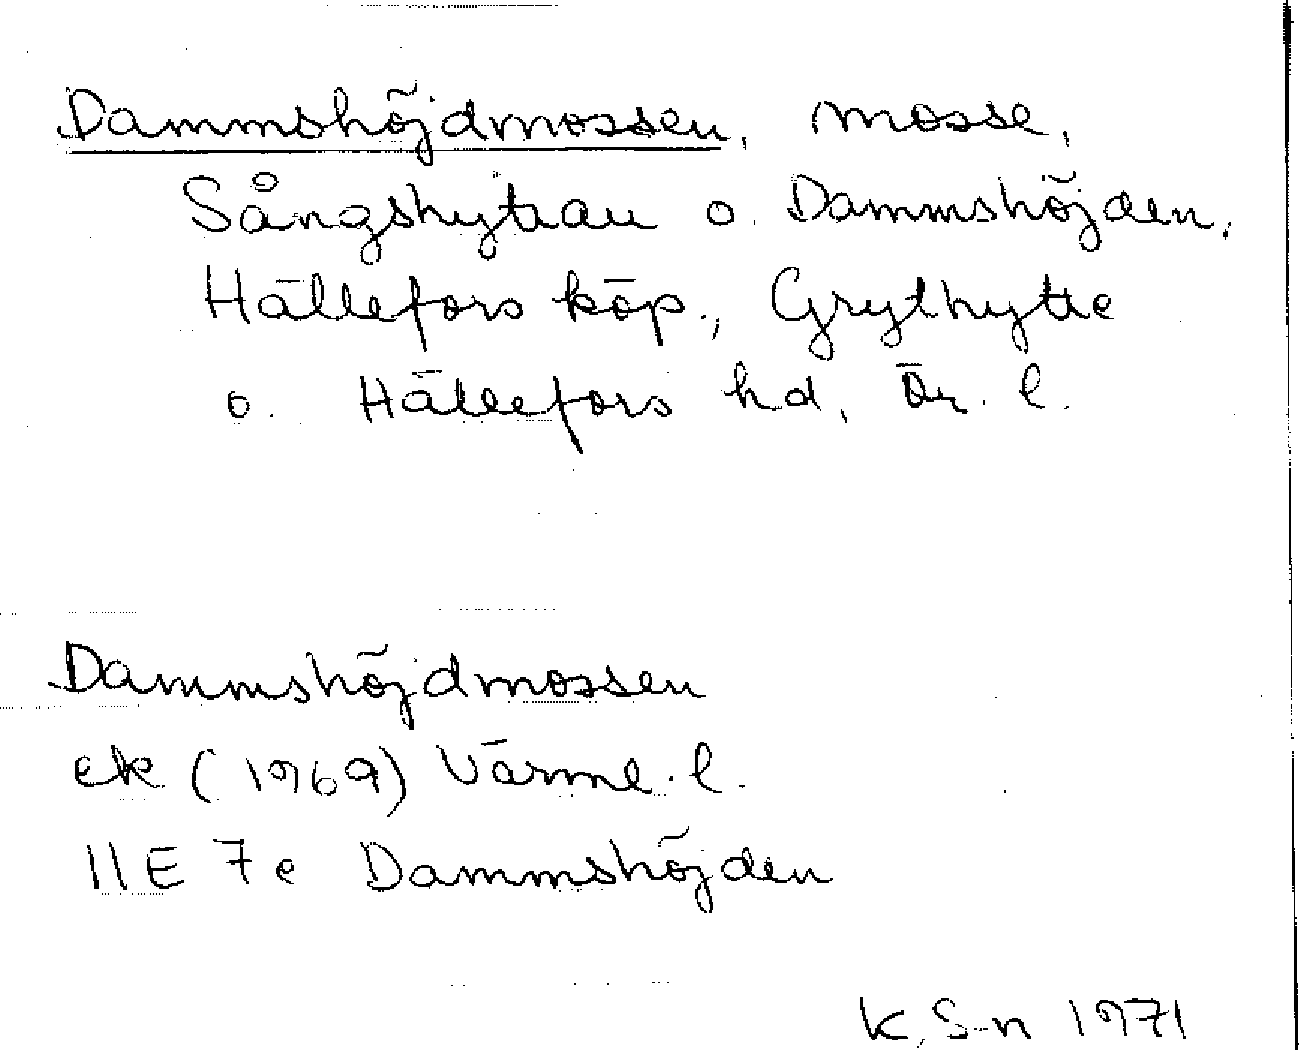 Dammshöjdmossen, mosse,
Sångshyttan o. Dammshöjden,
Hällefors köp., Grythytte
o. Hällefors hd, Ör. l.
Dammshöjdmossen
ek (1969) Värml. l.
11E 7e Dammshöjden
K. S-n 1971